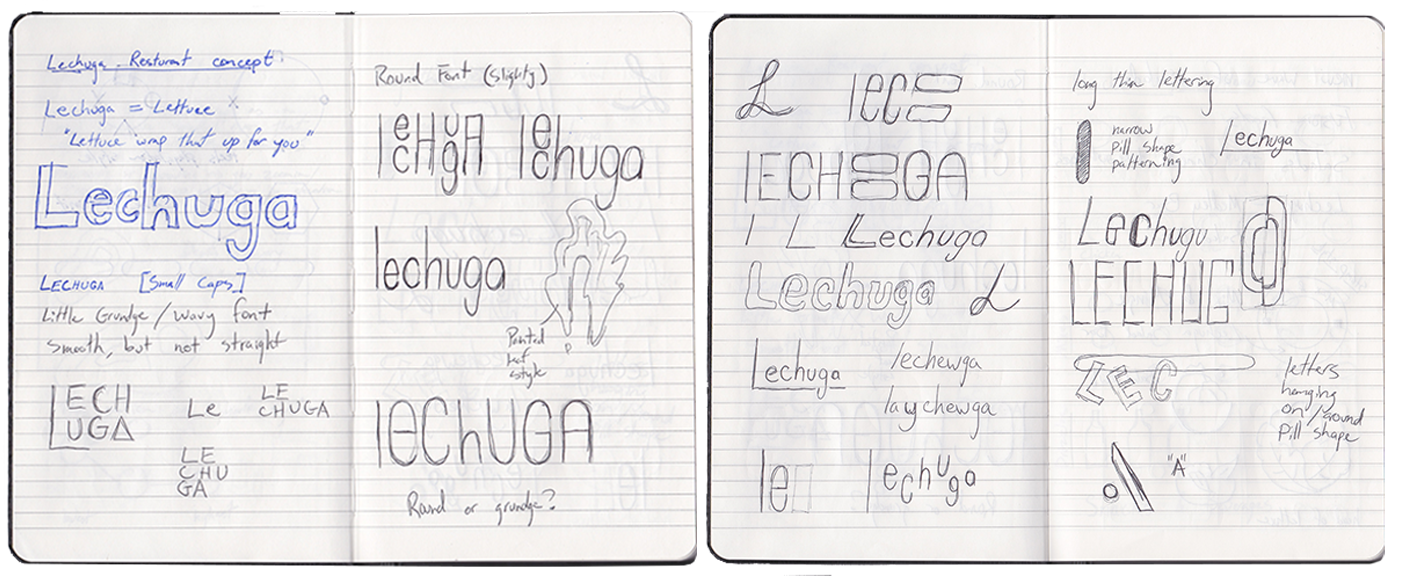 Lechuga - Resturant concept
Lechuga = Lettuce
"Lettuce wrap that up for you"
Lechuga
LECHUGA [Small Caps]
Little Grundge / wavy font
Smooth, but not straight
LECH
UGA
Le
LE
CHUGA
LE
CHU
GA
Round Font (Slighty)
lecHugA
lechuga
lechuga
Pointed
leaf
style
leChUGA
Round or grundge?
L
leC
lECH GA
l L Lechuga
Lechuga L
Lechuga
lechewga
lauychewga
le
lechuga
long thin lettering
narrow
pill shape
patterning
Lechuga
Lechugu
LECHUG
LEC
letters
hanging
on/around
pill shape
"A"